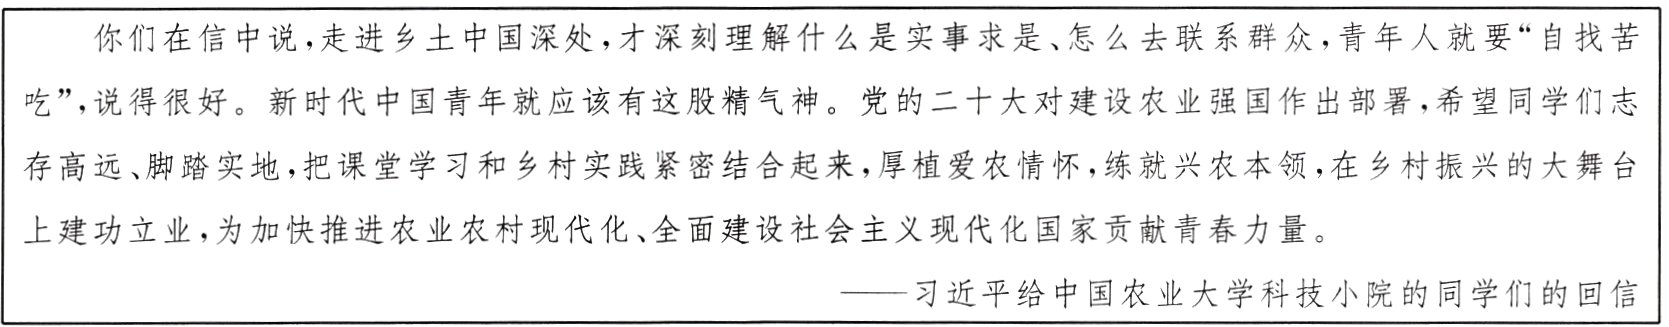 你们在信中说,走进乡土中国深处,才深刻理解什么是实事求是、怎么去联系群众,青年人就要“自找苦
吃”,说得很好。新时代中国青年就应该有这股精气神。党的二十大对建设农业强国作出部署,希望同学们志
存高远、脚踏实地,把课堂学习和乡村实践紧密结合起来,厚植爱农情怀,练就兴农本领,在乡村振兴的大舞台
上建功立业,为加快推进农业农村现代化、全面建设社会主义现代化国家贡献青春力量。
——习近平给中国农业大学科技小院的同学们的回信